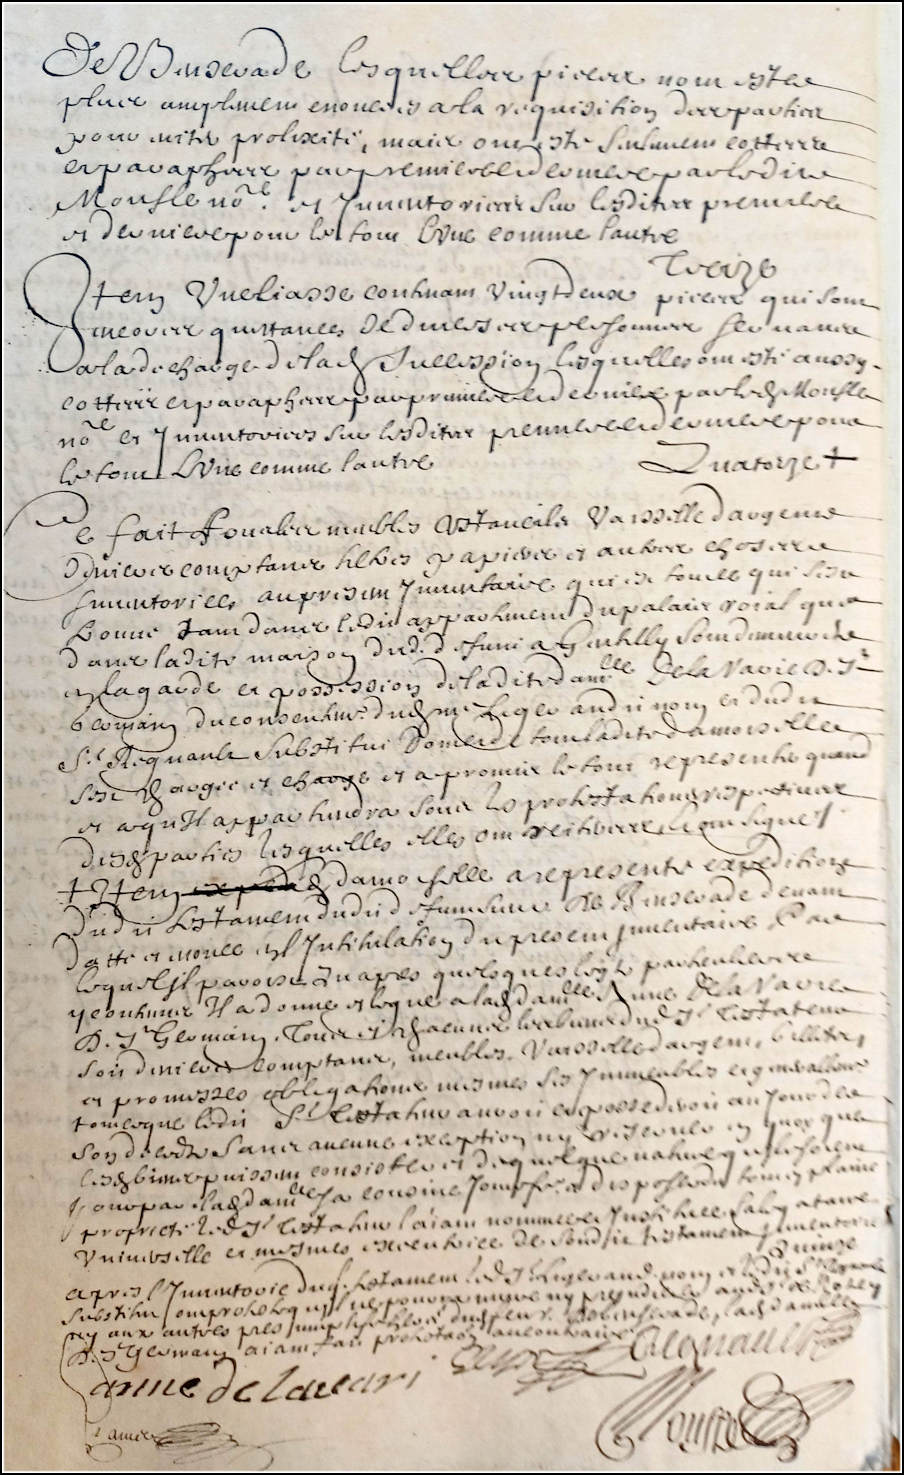 De Benserade lesquelles pieces nont esté
plus amplement enoncees a la requisition des parties
pour eviter prolixité, mais ont esté seulement cottees
et paraphees par premiere et derniere par ledit
Mousle no.re et Inventoriees sur lesdites premiere
et derniere pour le tout L'une comme l'autre
Treize
Item Une liasse contenant Vingt deux pieces qui sont
quittances de diverses personnes
a la decharge de lad. Succession lesquelles ont esté aussy
cottees et paraphees par premiere et derniere par led. Mousle
no.re et Inventoriees sur lesdites premiere et derniere pour
le tout L'une comme l'autre Quatorze +
Ce fait tous les meubles Ustancils Vaisselle d'argent
deniers comptans tiltres papiers et autres choses
Inventoriees au present Inventaire qui est tout ce qui s'est
trouvé tant dans ledit appartement du palais roial que
dans ladite maison dud. defunt a Gentilly sont demeurez
en la garde et possession de ladite dam.lle De la Varie D. S.t
Germain du consentem.t dud. m.e Legerand ou nom et dudit
S.r Regnault Substitut Dont et de tout ladite damoiselle
s'est chargée et charge et a promis le tout representer quand
et a qu'Il appartiendra sous les protestations respectives
desd. parties lesquelles elles ont reiterées et ont signé
+ Item lad. damoiselle a representé expedition
dudit testament dudit defunt sieur De Benserade devant
datté et enoncé en l'Intitulation du present Inventaire Par
lequel Il paroist qu'apres quelques legs particuliers
y contenus Il a donné et legué a lad. dam.lle Anne De la Varie
D. S.t Germain Tous et chacuns les biens dud. S.r testateur
soit deniers comptans, meubles, Vaisselle d'argent, billets,
et promesses obligations mesmes ses Immeubles et generallement
tout ce que ledit S.r testateur avoit et possedoit au Jour de
son deceds sans aucune exception ny reserve en quoy que
lesd. biens puissent consister et de quelque nature qu'ils soient
pour par lad. dam.lle sa cousine Jouir faire et disposer du tout en plaine
proprieté led. S.r testateur l'aiant nommée et Instituée sa legataire
Universelle et mesmes executrice de sondit testament Inventorié
Quinze
Apres l'Inventorié dud. testament led. S.r Legerand ou nom et ledit S.r Regnault
Substitut ont protesté qu'il ne poura nuire ny prejudicier
ny aux autres pres. heritiers dud. feu s.r de Benserade, lad. damoiselle
D. S.t Germain aiant fait protestation au contraire
Regnault
anne de lavari
Mousle